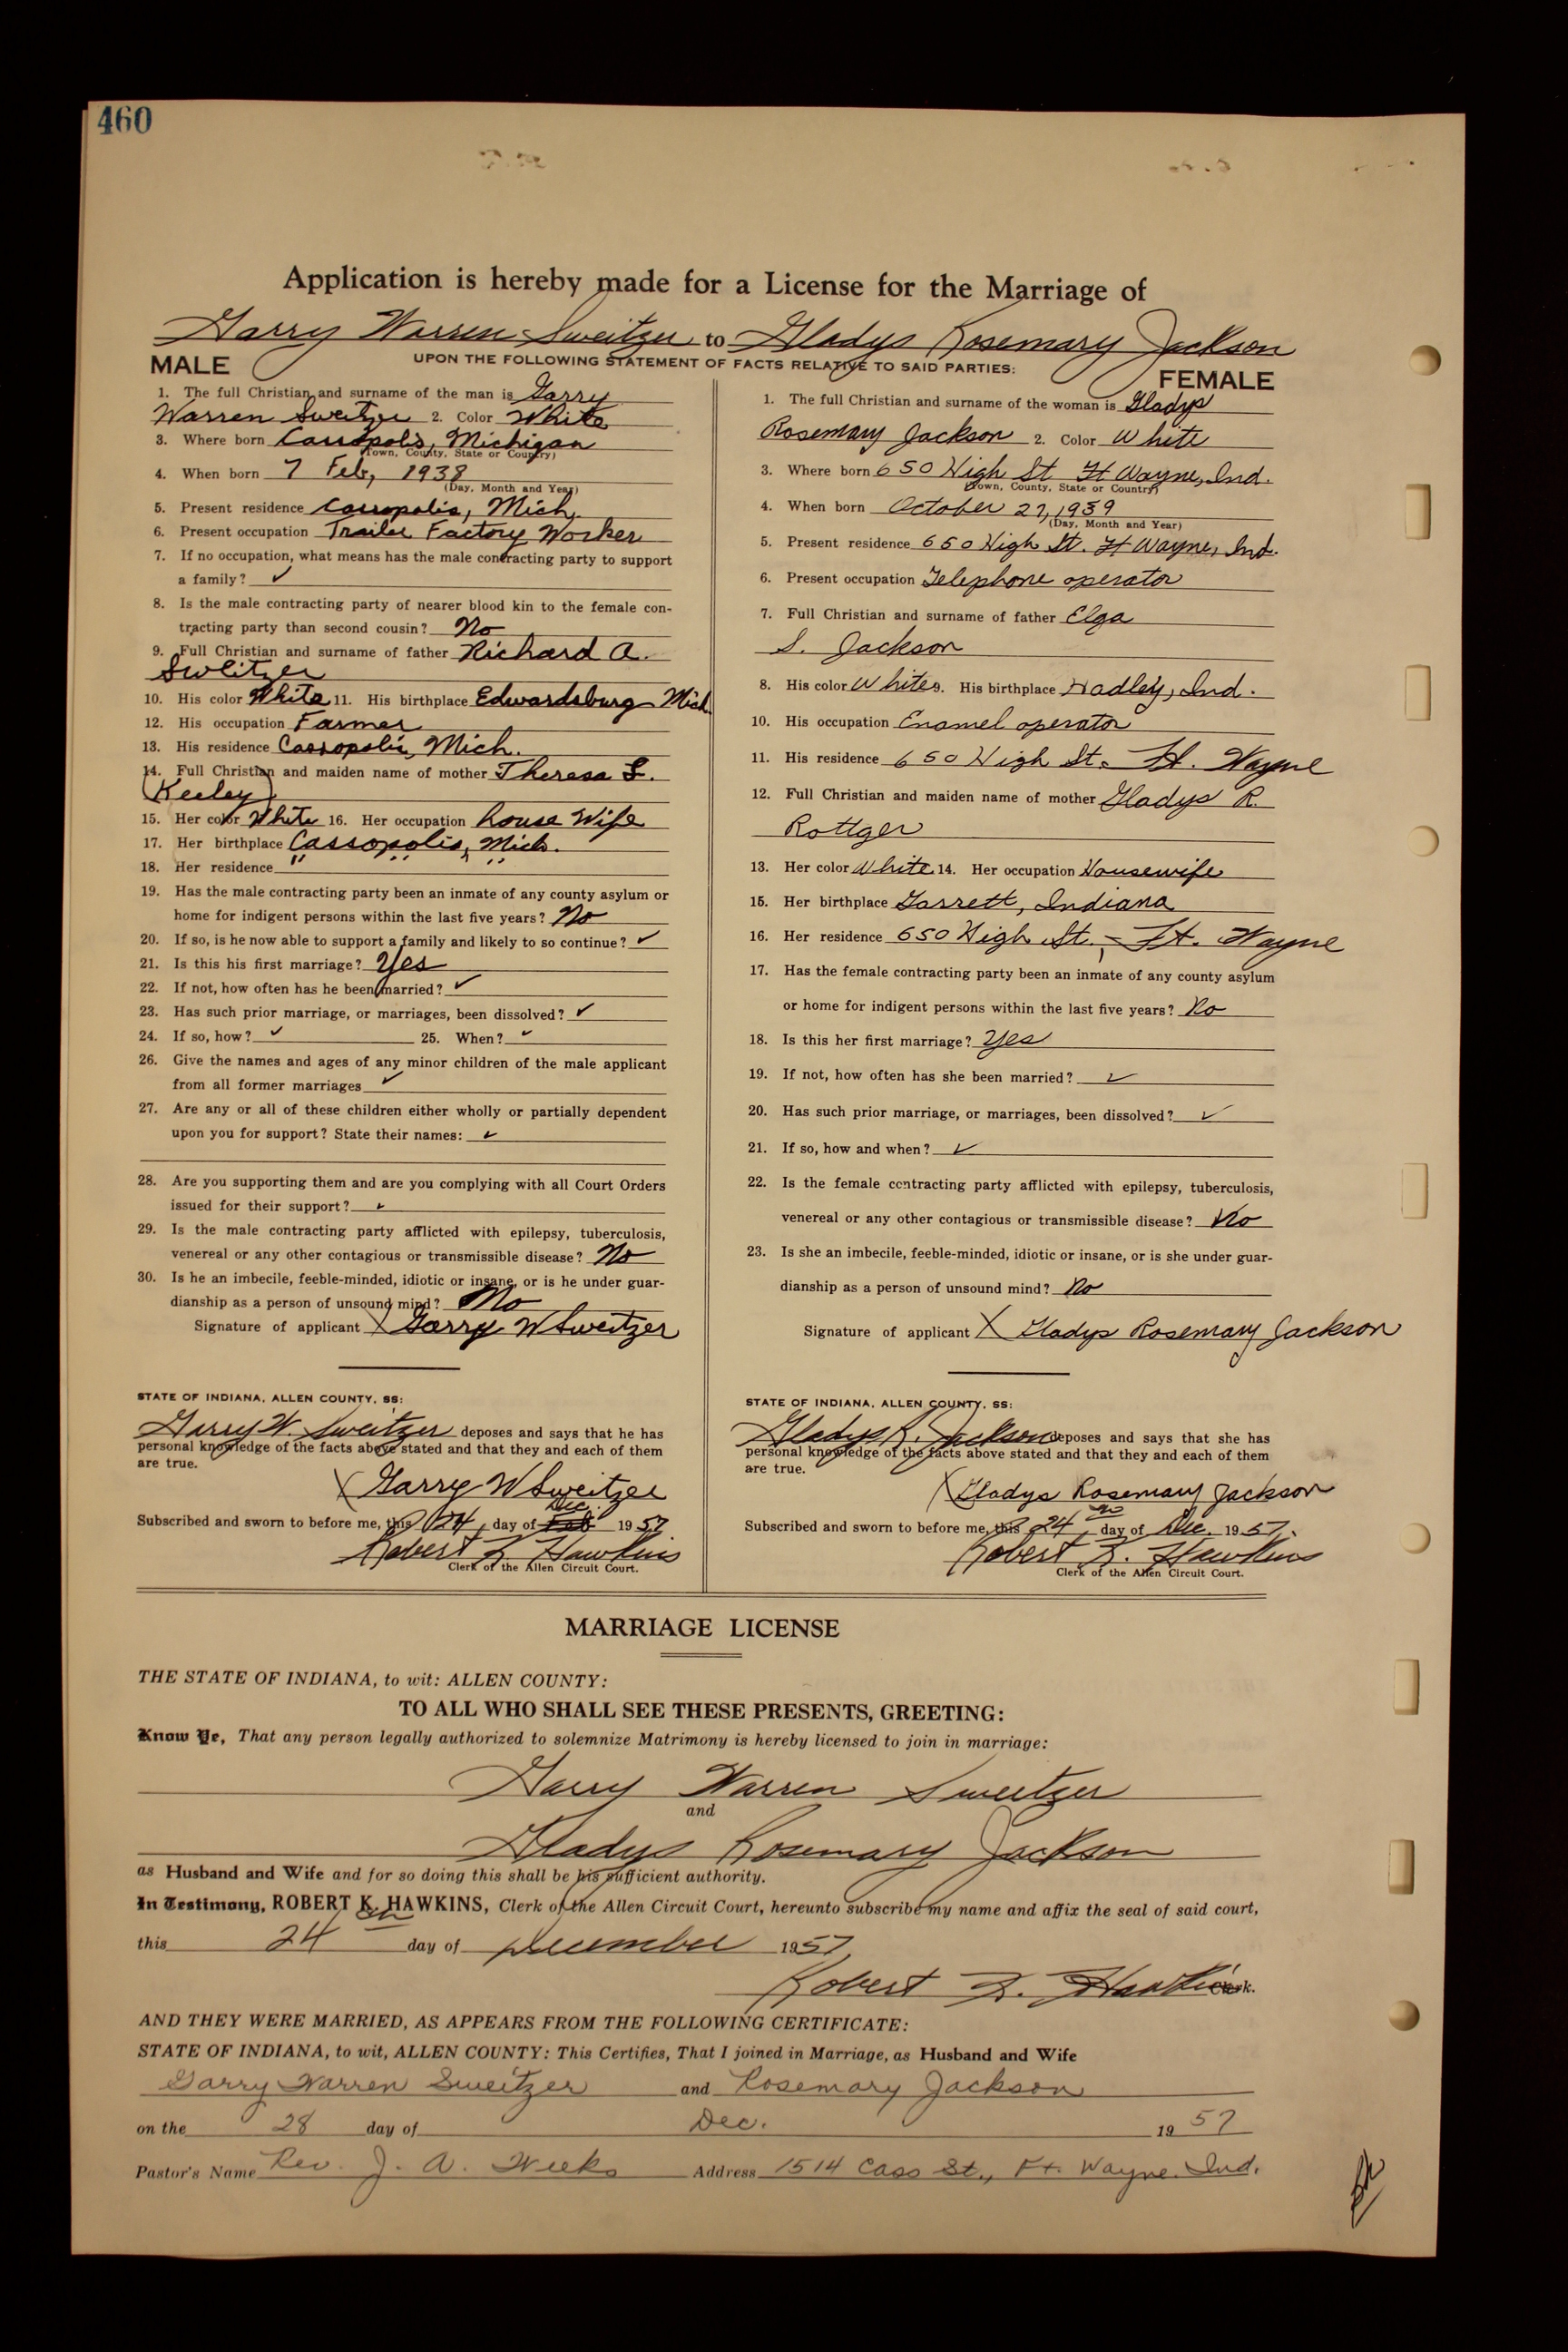 460
Application is hereby made for a License for the Marriage of
Garry Warren Sweitzer to Gladys Rosemary Jackson
MALE UPON THE FOLLOWING STATEMENT OF FACTS RELATIVE TO SAID PARTIES: FEMALE
1. The full Christian and surname of the man is Garry
Warren Sweitzer 2. Color White
3. Where born Cassopolis, Michigan
(Town, County, State or Country)
4. When born 7 Feb, 1938
(Day, Month and Year)
5. Present residence Cassopolis, Mich.
6. Present occupation Trailer Factory Worker
7. If no occupation, what means has the male contracting party to support
a family? ✓
8. Is the male contracting party of nearer blood kin to the female con-
tracting party than second cousin? No
9. Full Christian and surname of father Richard A.
Sweitzer
10. His color White 11. His birthplace Edwardsburg Mich
12. His occupation Farmer
13. His residence Cassopolis, Mich.
14. Full Christian and maiden name of mother Theresa L.
(Keeley)
15. Her color White 16. Her occupation house Wife
17. Her birthplace Cassopolis, Mich.
18. Her residence " " "
19. Has the male contracting party been an inmate of any county asylum or
home for indigent persons within the last five years? No
20. If so, is he now able to support a family and likely to so continue? ✓
21. Is this his first marriage? Yes
22. If not, how often has he been married? ✓
23. Has such prior marriage, or marriages, been dissolved? ✓
24. If so, how? ✓ 25. When? ✓
26. Give the names and ages of any minor children of the male applicant
from all former marriages ✓
27. Are any or all of these children either wholly or partially dependent
upon you for support? State their names: ✓
28. Are you supporting them and are you complying with all Court Orders
issued for their support? ✓
29. Is the male contracting party afflicted with epilepsy, tuberculosis,
venereal or any other contagious or transmissible disease? No
30. Is he an imbecile, feeble-minded, idiotic or insane, or is he under guar-
dianship as a person of unsound mind? No
Signature of applicant X Garry W Sweitzer
STATE OF INDIANA, ALLEN COUNTY, SS:
Garry W. Sweitzer deposes and says that he has
personal knowledge of the facts above stated and that they and each of them
are true.
X Garry W Sweitzer
Dec.
Subscribed and sworn to before me, this 24 day of Feb 1957
Robert K Hawkins
Clerk of the Allen Circuit Court.
1. The full Christian and surname of the woman is Gladys
Rosemary Jackson 2. Color White
3. Where born 650 High St Ft Wayne, Ind.
(Town, County, State or Country)
4. When born October 27, 1939
(Day, Month and Year)
5. Present residence 650 High St. Ft Wayne, Ind.
6. Present occupation Telephone operator
7. Full Christian and surname of father Elga
S. Jackson
8. His color White 9. His birthplace Hadley, Ind.
10. His occupation Enamel operator
11. His residence 650 High St. Ft. Wayne
12. Full Christian and maiden name of mother Gladys R.
Rottger
13. Her color White 14. Her occupation Housewife
15. Her birthplace Garrett, Indiana
16. Her residence 650 High St. - Ft. Wayne
17. Has the female contracting party been an inmate of any county asylum
or home for indigent persons within the last five years? No
18. Is this her first marriage? Yes
19. If not, how often has she been married? ✓
20. Has such prior marriage, or marriages, been dissolved? ✓
21. If so, how and when? ✓
22. Is the female contracting party afflicted with epilepsy, tuberculosis,
venereal or any other contagious or transmissible disease? No
23. Is she an imbecile, feeble-minded, idiotic or insane, or is she under guar-
dianship as a person of unsound mind? No
Signature of applicant X Gladys Rosemary Jackson
STATE OF INDIANA, ALLEN COUNTY, SS:
Gladys R. Jackson deposes and says that she has
personal knowledge of the facts above stated and that they and each of them
are true.
X Gladys Rosemary Jackson
Subscribed and sworn to before me, this 24 day of Dec. 1957.
Robert K. Hawkins
Clerk of the Allen Circuit Court.
MARRIAGE LICENSE
THE STATE OF INDIANA, to wit: ALLEN COUNTY:
TO ALL WHO SHALL SEE THESE PRESENTS, GREETING:
Know Ye, That any person legally authorized to solemnize Matrimony is hereby licensed to join in marriage:
Garry Warren Sweitzer
and
Gladys Rosemary Jackson
as Husband and Wife and for so doing this shall be his sufficient authority.
In Testimony, ROBERT K. HAWKINS, Clerk of the Allen Circuit Court, hereunto subscribe my name and affix the seal of said court,
this 24th day of December 1957
Robert K. Hawkins Clerk.
AND THEY WERE MARRIED, AS APPEARS FROM THE FOLLOWING CERTIFICATE:
STATE OF INDIANA, to wit, ALLEN COUNTY: This Certifies, That I joined in Marriage, as Husband and Wife
Garry Warren Sweitzer and Rosemary Jackson
on the 28 day of Dec. 1957
Pastor's Name Rev. J. A. Weeks Address 1514 Cass St., Ft. Wayne. Ind.